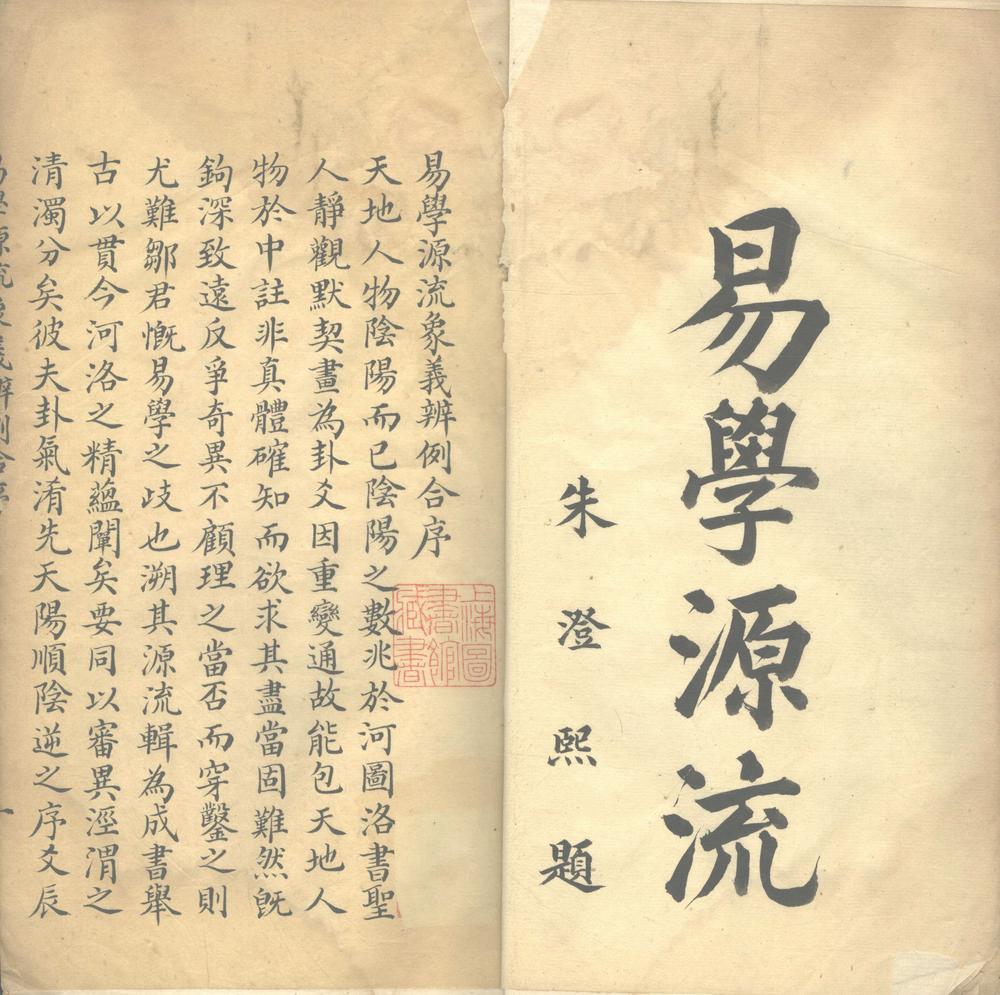 易學源流
朱澄熙題
易學源流象義辨例合序
天地人物陰陽而已陰陽之數兆於河圖洛書聖
人靜觀默契畫為卦爻因重變通故能包天地人
物於中註非真體確知而欲求其盡當固難然旣
鉤深致遠反爭奇異不顧理之當否而穿鑿之則
尤難鄒君慨易學之歧也溯其源流輯為成書舉
古以貫今河洛之精蘊闡矣要同以審異涇渭之
清濁分矣彼夫卦氣淆先天陽順陰逆之序爻辰
上海圖
書館
藏書